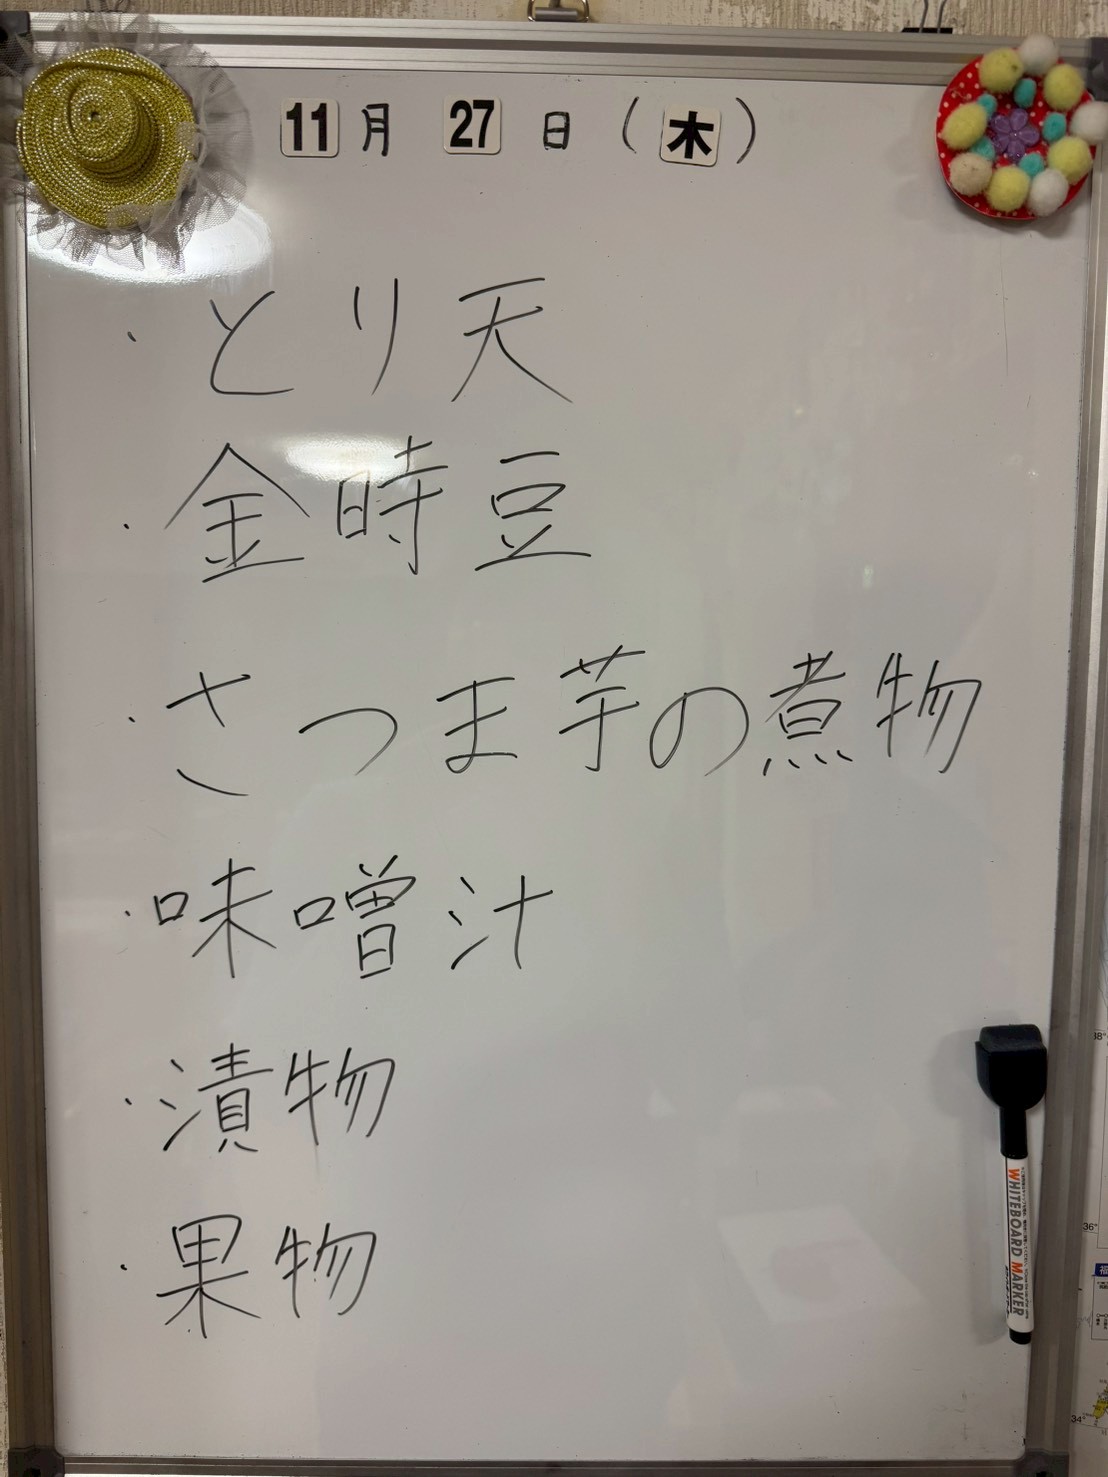 11月 27日（木）
・とり天
・金時豆
・さつま芋の煮物
・味噌汁
・漬物
・果物
WHITEBOARD MARKER
38°
36°
34°